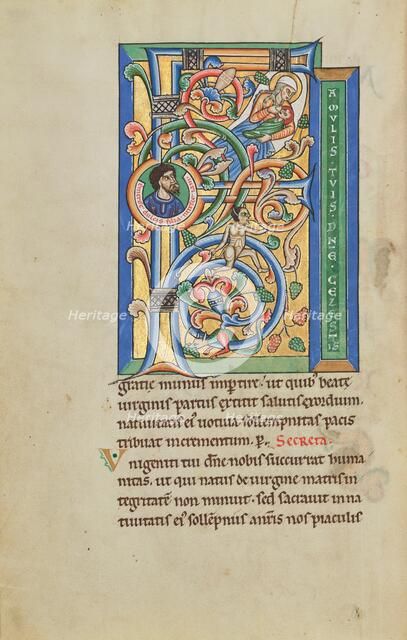 F
AMVLIS · TVIS · DNE · CELESTIS
gratie munus impertire · ut quib' beate
uirginis partus extitit salutis exordium,
natiuitatis ei' uotiua sollempnitas pacis
tribuat incrementum. p. Secreta.
Vnigeniti tui dne nobis succurrat huma
nitas, ut qui natus de uirgine matris in
tegritatē non minuit · sed sacrauit in na
tiuitatis ei' sollēpniis a nr̄is nos piaculis
Heritage
Heritage
Heritage
Heritage
Images
Images